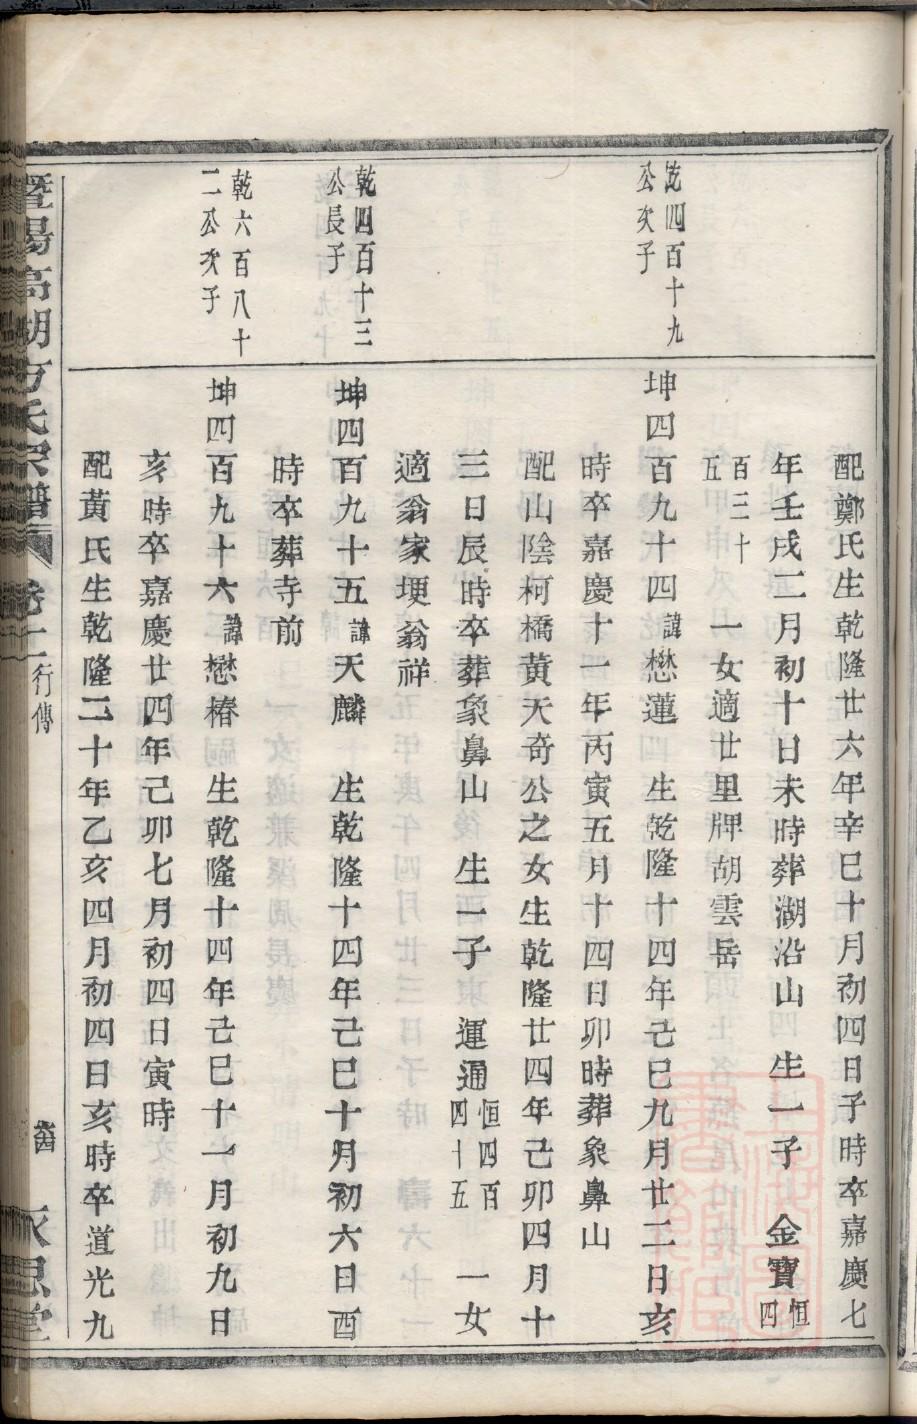 配鄭氏生乾隆廿六年辛巳十月初四日子時卒嘉慶七
年壬戌二月初十日未時葬湖沿山 生一子 金寶恒四
百三十五 一女適廿里牌胡雲岳
乾四百十九公次子
坤四百九十四諱懋蓮 生乾隆十四年己巳九月廿二日亥
時卒嘉慶十一年丙寅五月十四日卯時葬象鼻山
配山陰柯橋黃天奇公之女生乾隆廿四年己卯四月十
三日辰時卒葬象鼻山 生一子 運通恒四百四十五 一女
適翁家埂翁祥
乾四百十三公長子
坤四百九十五諱天麟 生乾隆十四年己巳十月初六日酉
時卒葬寺前
乾六百八十二公次子
坤四百九十六諱懋椿 生乾隆十四年己巳十一月初九日
亥時卒嘉慶廿四年己卯七月初四日寅時
配黃氏生乾隆二十年乙亥四月初四日亥時卒道光九
暨陽高湖方氏宗譜 卷 行傳 思堂